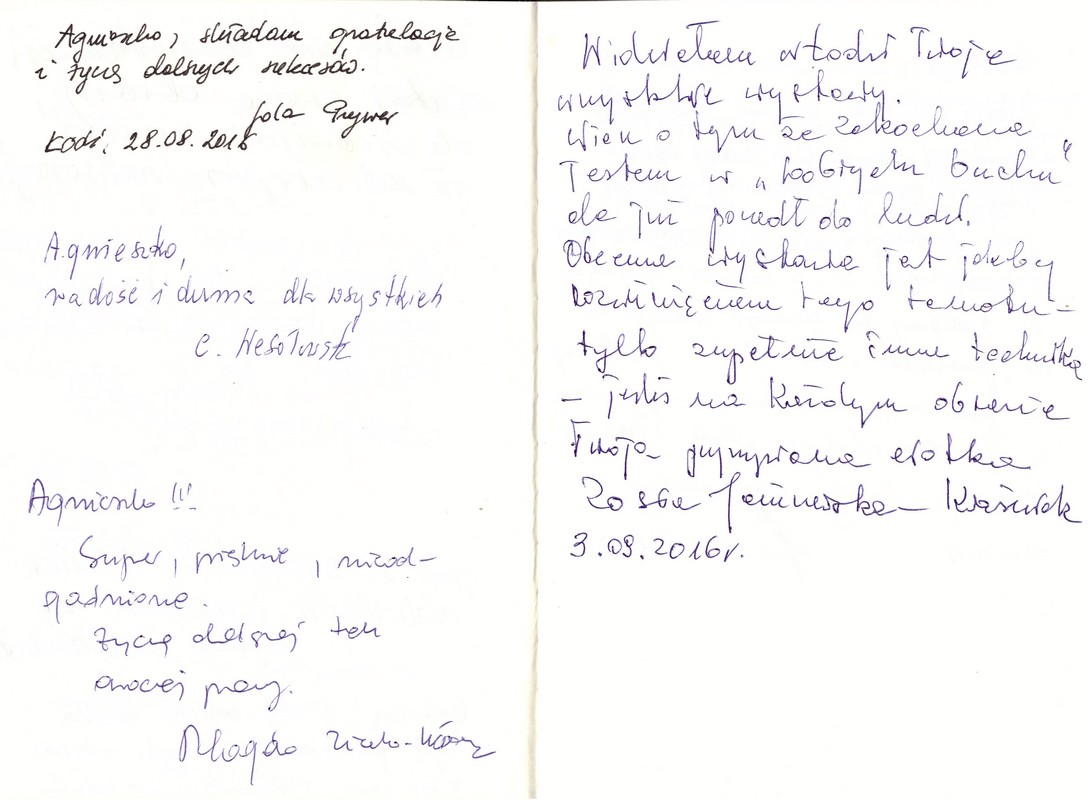 Agnieszko, składam gratulacje
i życzę dalszych sukcesów.
Jola
Łódź, 28.08.2016
Agnieszko,
radość i duma dla wszystkich
C. Wesołowski
Agnieszko !!!
Super, pięknie, nieod-
gadnione.
Życzę dalszej tak
owocej pracy.
Magda
Widziałam w Łodzi Twoje
wszystkie wystawy.
Wiem o tym że zakochana
Jesteś w
ale już poszedł do ludzi.
Obecna wystawa jest jakoby
rozwinięciem tego tematu -
tylko zupełnie inna technika
- jesteś na każdym obrazie
Twoja
Zosia
3.09.2016r.